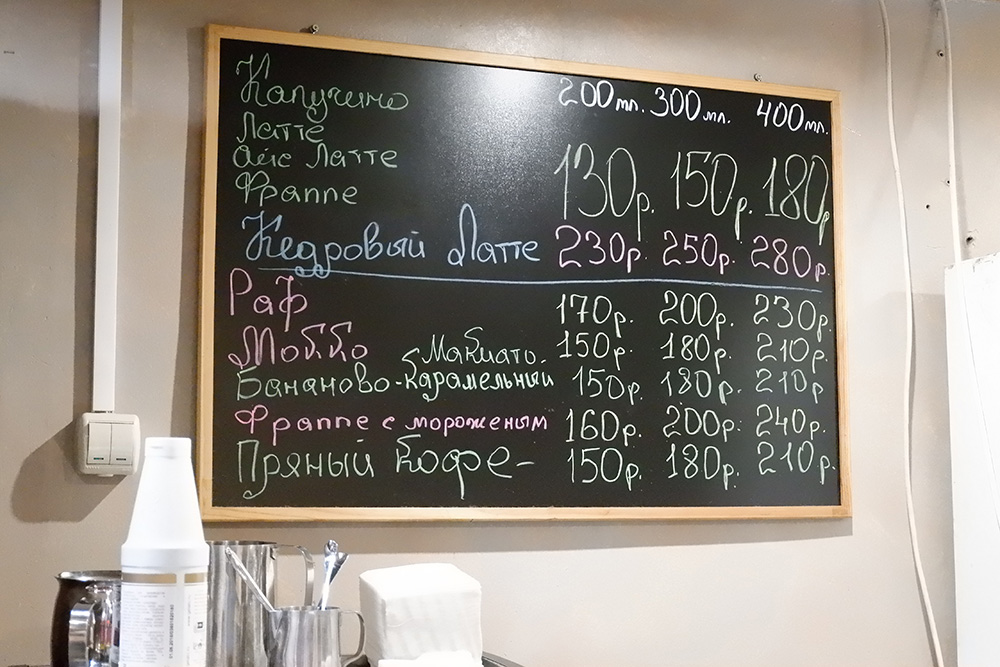 Капучино 200 мл. 300 мл. 400 мл.
Латте
Айс Латте 130р. 150р. 180р
Фраппе
Кедровый Латте 230р. 250р. 280р.
Раф 170р. 200р. 230р.
Мокко 150р. 180р. 210р.
Макиато-
Бананово-Карамельный 150р. 180р. 210р
Фраппе с мороженым 160р. 200р. 240р.
Пряный Кофе- 150р. 180р. 210р.